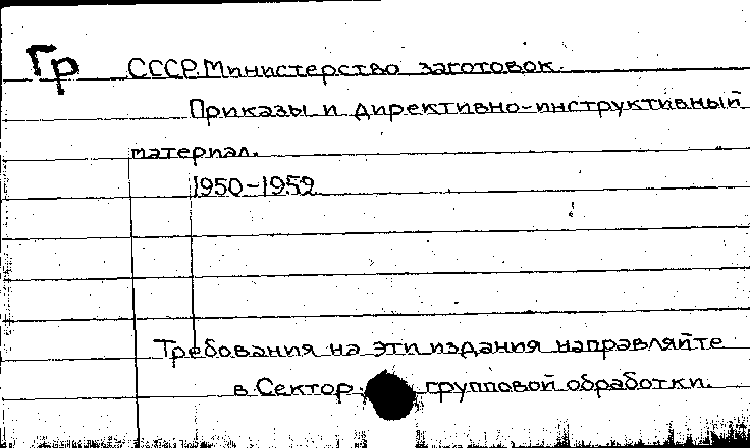 Гр СССР. Министерство заготовок.
Приказы и директивно-инструктивный
материал.
1950-1952
Требования на эти издания направляйте
в Сектор групповой обработки.